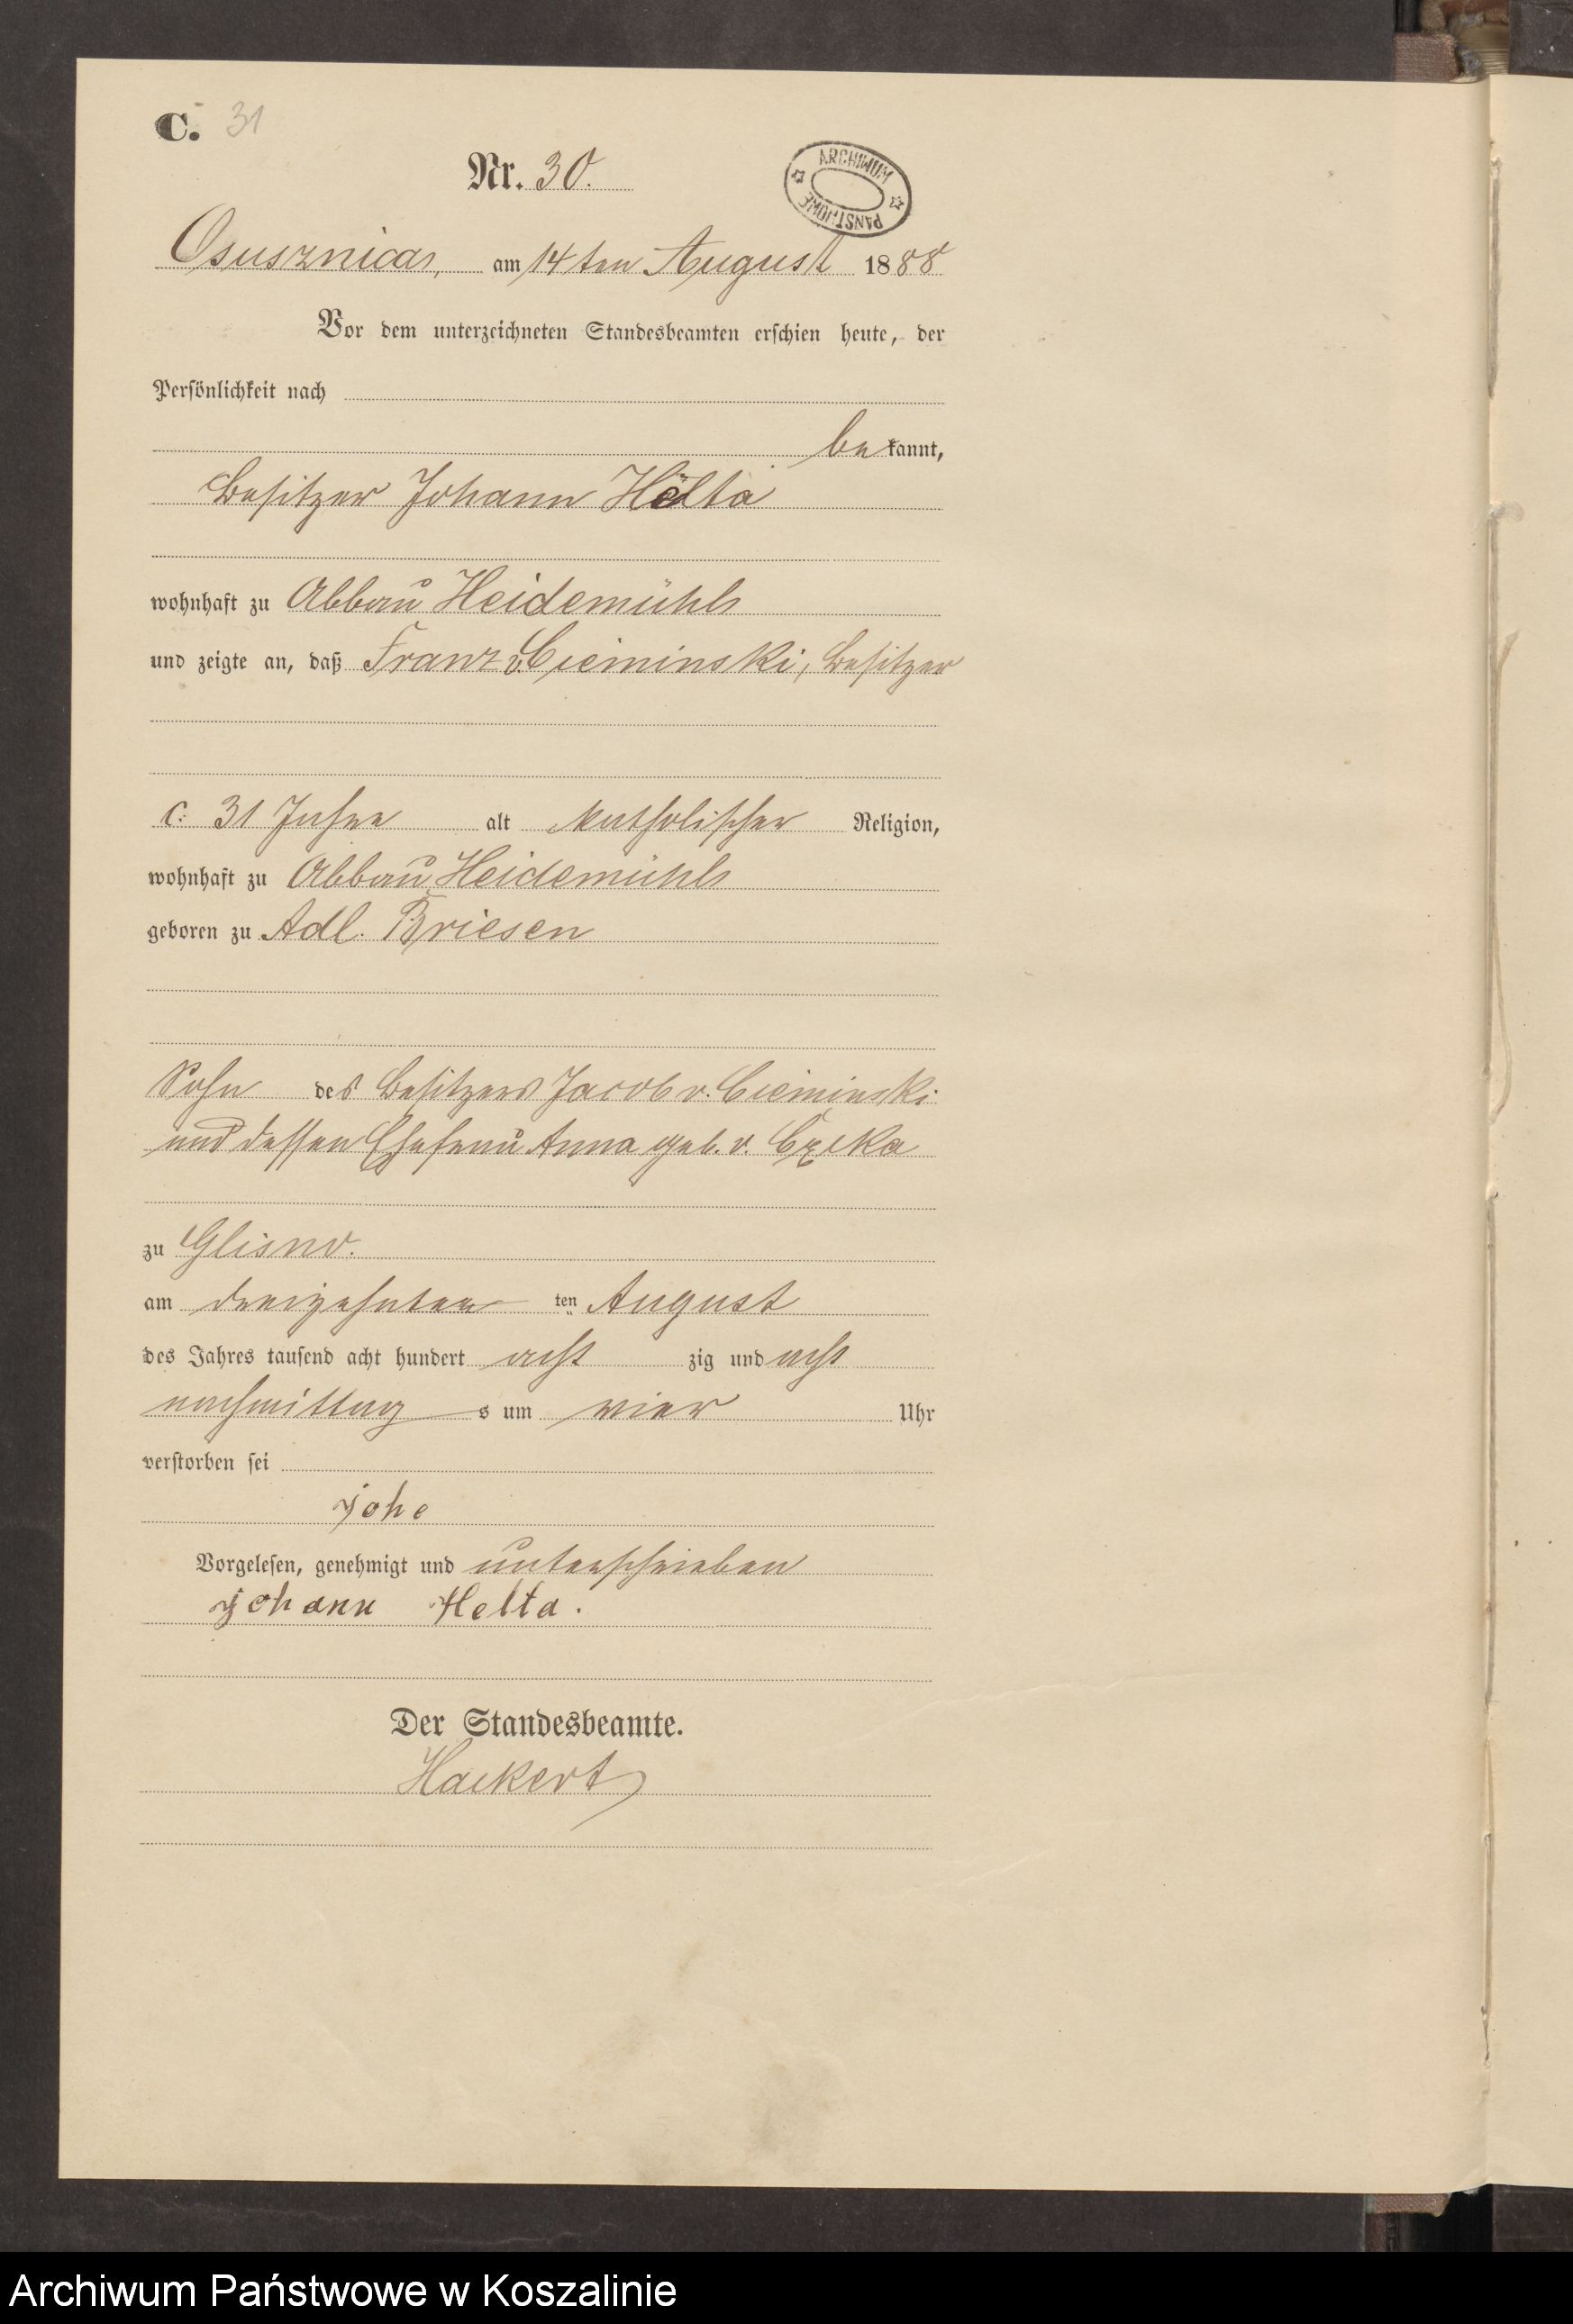 C. 31
Nr. 30.
ARCHIWUM PAŃSTWOWE
Osusznica, am 14 ten August 1888
Vor dem unterzeichneten Standesbeamten erschien heute, der
Persönlichkeit nach
bekannt,
Besitzer Johann Hölta
wohnhaft zu Abbau Heidemühle
und zeigte an, daß Franz v. Cieminski, Besitzer
c. 31 Jahre alt katholischer Religion,
wohnhaft zu Abbau Heidemühle
geboren zu Adl. Briesen
Sohn des Besitzers Jacob v. Cieminski
und dessen Ehefrau Anna geb. v.
zu Glisno.
am dreizehnten ten August
des Jahres tausend acht hundert acht zig und acht
nachmittag s um vier Uhr
verstorben sei
Johe
Vorgelesen, genehmigt und unterschrieben
Johann Helta.
Der Standesbeamte.
Hackert
Archiwum Państwowe w Koszalinie